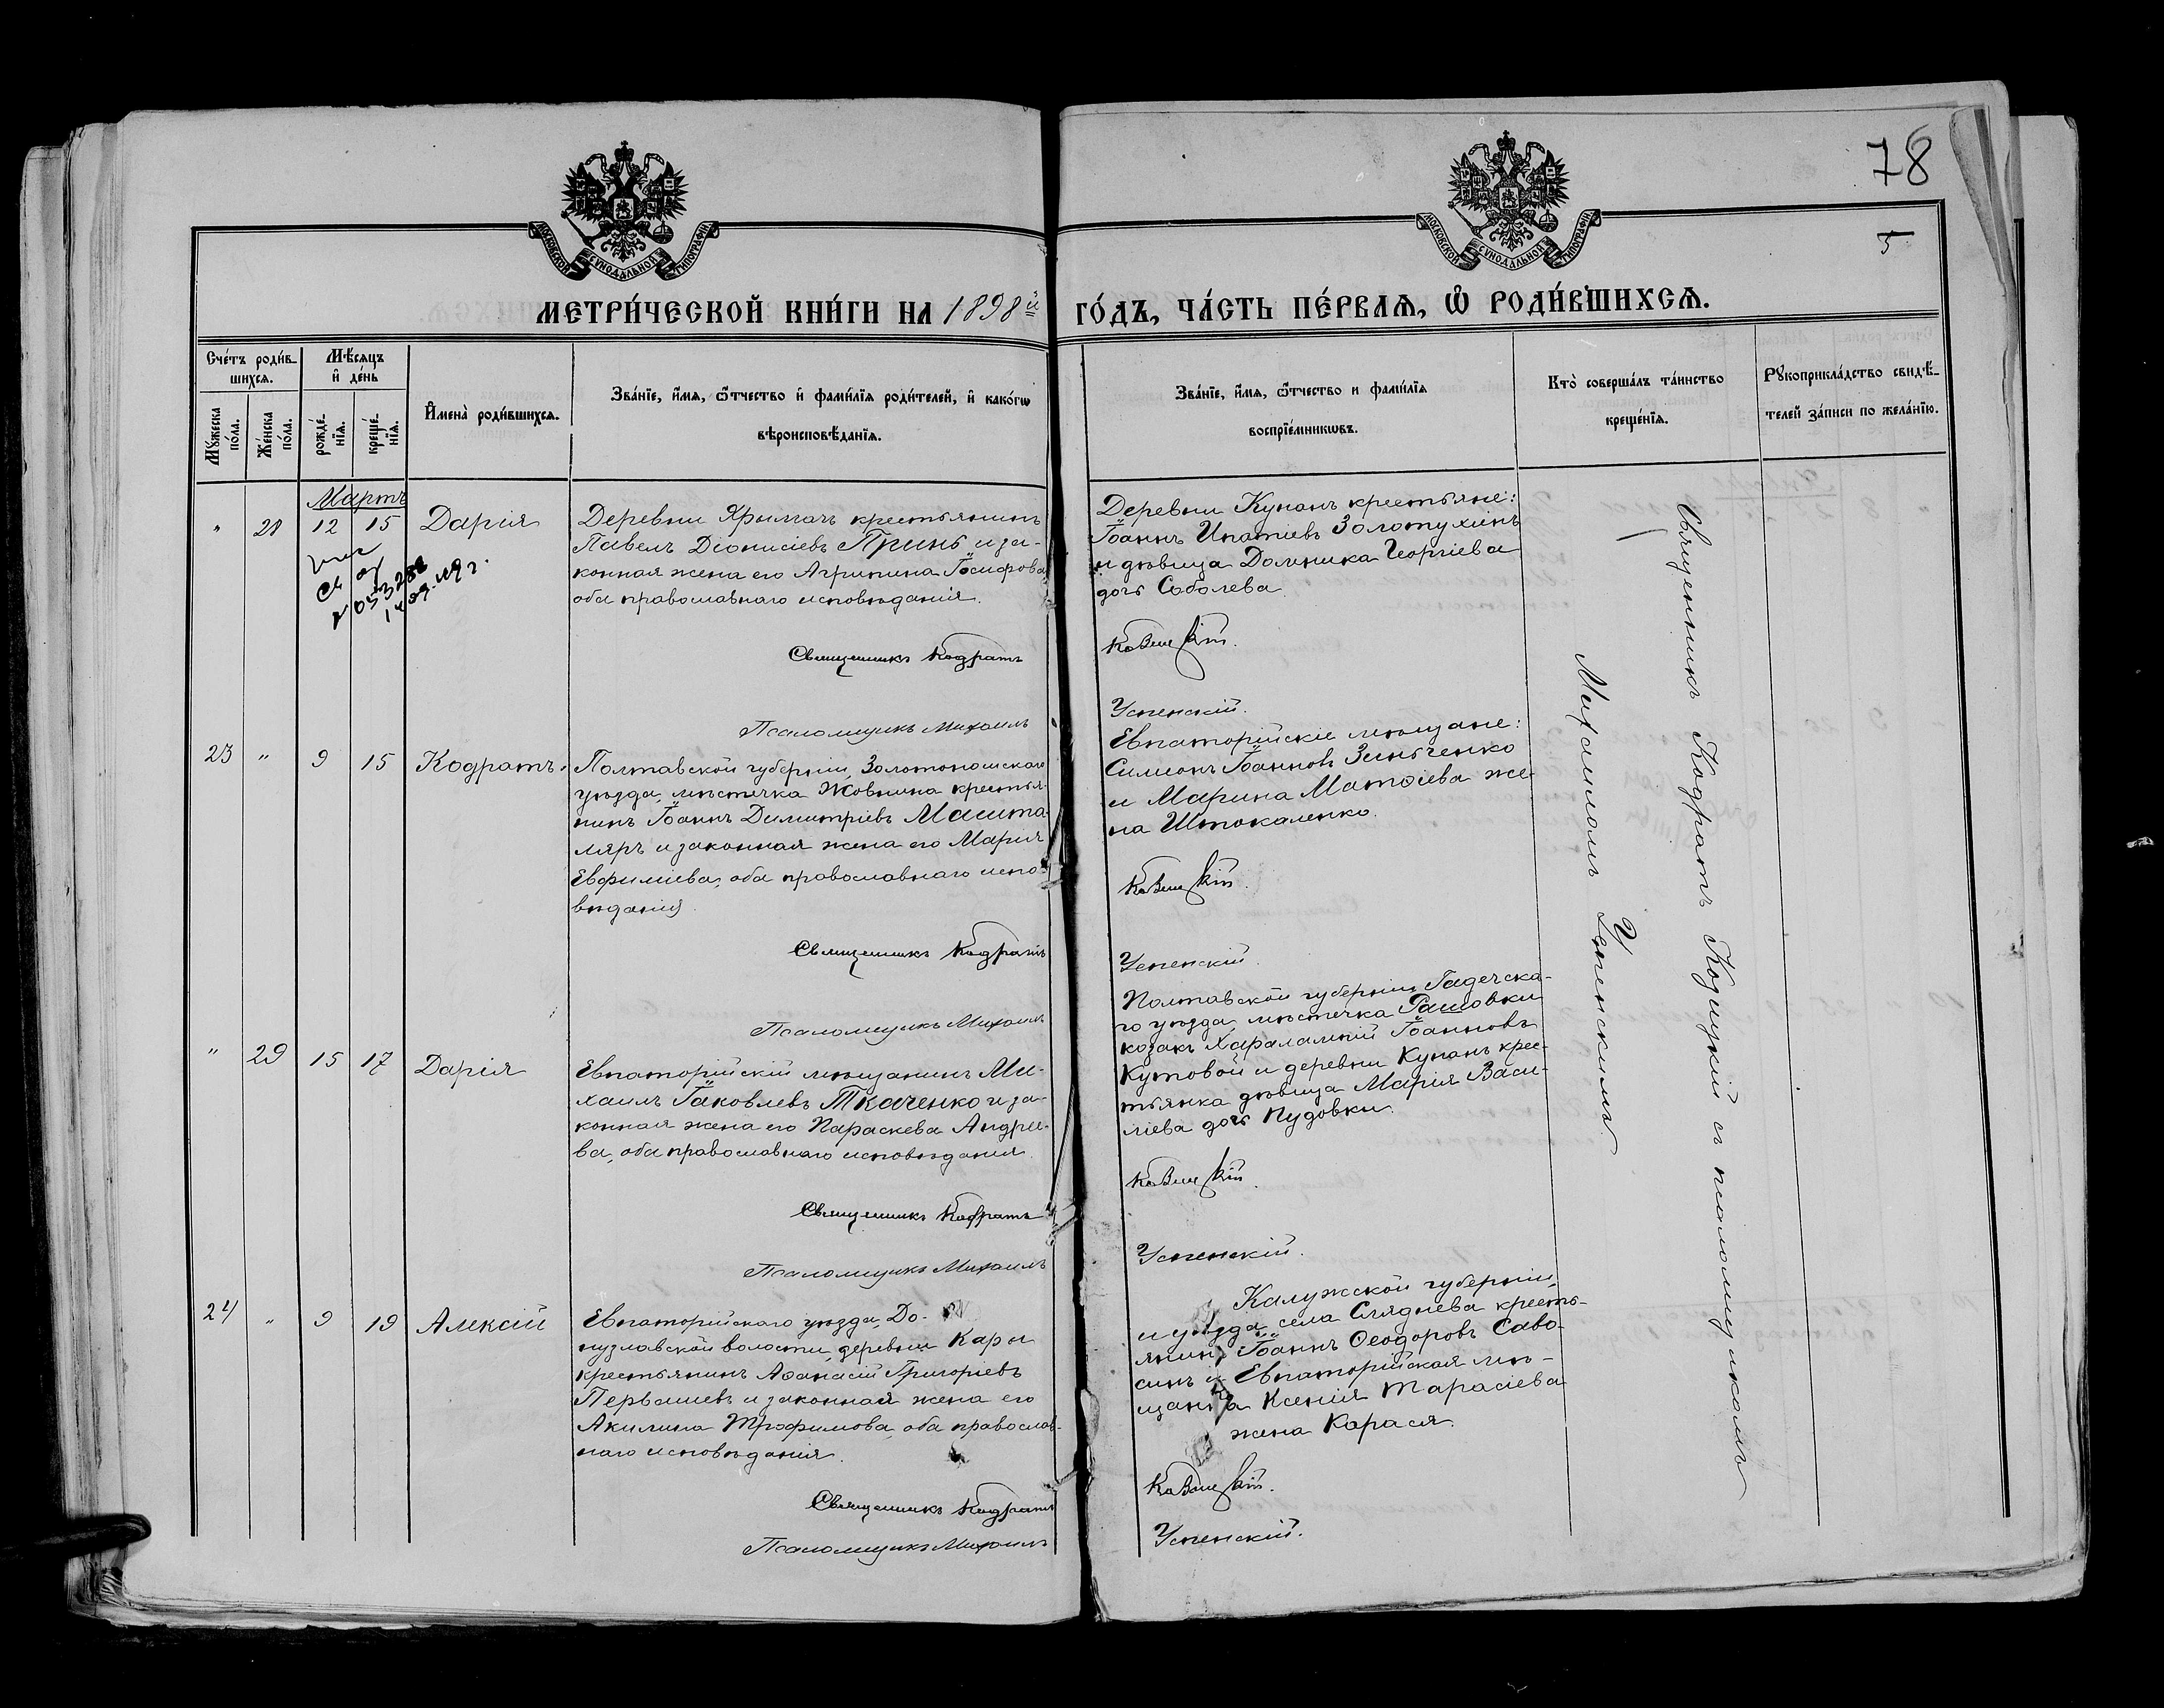 78
5
МОСКОВСКОЙ СѴНОДАЛЬНОЙ ТИПОГРАФІИ
МОСКОВСКОЙ СѴНОДАЛЬНОЙ ТИПОГРАФІИ
МЕТРИ́ЧЕСКОЙ КНИ́ГИ НА 1898й ГО́ДЪ, ЧА́СТЬ ПЕ́РВАѦ, Ѡ҆ РОДИ́ВШИХСѦ.
Сче́тъ роди́в-
шихсѧ.
Мѣ́сѧцъ
и҆ де́нь
Мꙋ́жеска
по́ла.
Же́нска
по́ла.
рожде́-
нїѧ.
креще́-
нїѧ.
И҆мена̀ роди́вшихсѧ.
Зва́нїе, и҆́мѧ, ѻ҆́тчество и҆ фами́лїѧ роди́телей, и҆ како́гѡ
вѣроисповѣ́данїѧ.
Зва́нїе, и҆́мѧ, ѻ҆́тчество и фами́лїѧ
воспрїе́мникѡвъ.
Кто̀ соверша́лъ та́инство
креще́нїѧ.
Рꙋкоприкла́дство свидѣ́-
телей за́писи по жела́нїю.
Мартъ
" 28 12 15 Дарія
Деревни Ярылгачъ крестьянинъ
Павелъ Діонисіевъ Гринь и за-
конная жена его Агрипина Іосифова,
оба православнаго исповѣданія.
Священникъ Кодратъ
Псаломщикъ Михаилъ
Деревни Кунанъ крестьяне:
Іоаннъ Ипатіевъ Золотухинъ
и дѣвица Домника Георгіева
дочь Соболева.
Успенскій.
23 " 9 15 Кодратъ.
Полтавской губерніи, Золотоношскаго
уѣзда, мѣстечка Жовнина крестья-
нинъ Іоаннъ Димитріевъ Машта-
ляръ и законная жена его Марія
Евфиміева, оба православнаго испо-
вѣданія.
Священникъ Кодратъ
Псаломщикъ Михаилъ
Евпаторійскіе мѣщане:
Симеонъ Іоанновъ Зинченко
и Марина Матѳіева же-
на Штокаленко.
Успенскій.
" 29 15 17 Дарія
Евпаторійскій мѣщанинъ Ми-
хаилъ Іаковлевъ Ткаченко и за-
конная жена его Параскева Андрее-
ва, оба православнаго исповѣданія.
Священникъ Кодратъ
Псаломщикъ Михаилъ
Полтавской губерніи, Гадячска-
го уѣзда, мѣстечка Рашовки
козакъ Харалампій Іоанновъ
Кутовой и деревни Кунанъ крес-
тьянка дѣвица Марія Васи-
ліева дочь Пудовки.
Успенскій.
24 " 9 19 Алексій
Евпаторійскаго уѣзда, До-
нузлавской волости, деревни Кары
крестьянинъ Аѳанасій Григоріевъ
Первашевъ и законная жена его
Акилина Трофимова, оба православ-
наго исповѣданія.
Священникъ Кодратъ
Псаломщикъ Михаилъ
Калужской губерніи,
и уѣзда, села Сляднева кресть-
янинъ Іоаннъ Ѳеодоровъ Саво-
синъ и Евпаторійская мѣ-
щанка Ксенія Тарасіева
жена Карася.
Успенскій.
Священникъ Кодратъ Козицкій съ псаломщикомъ
Михаиломъ Успенскимъ